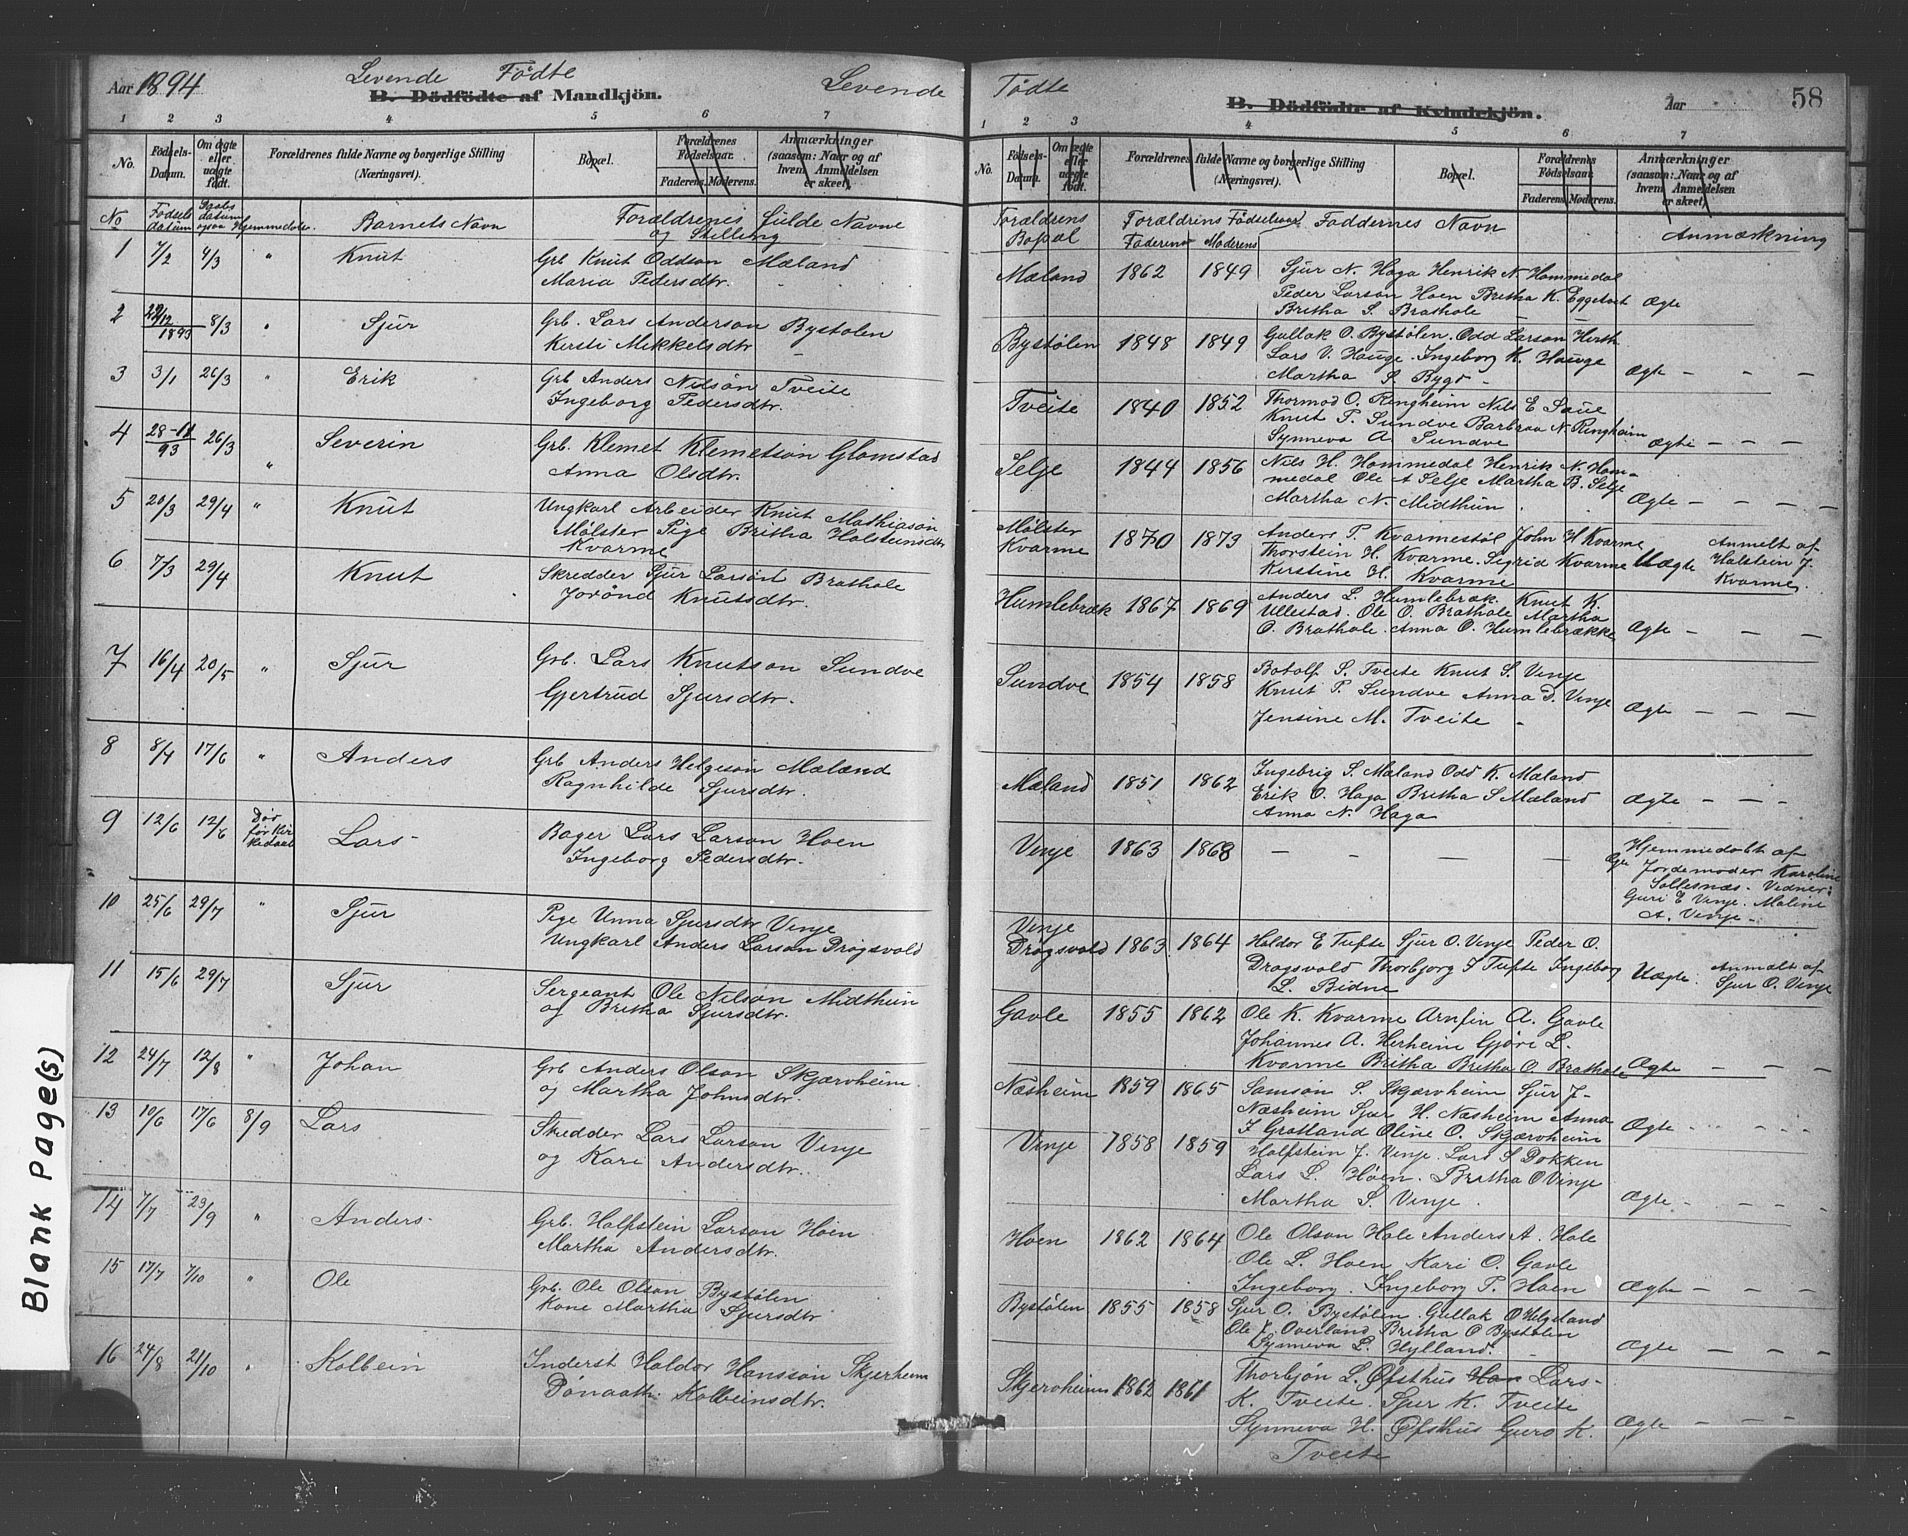 Aar 1894 Levende Födte Levende Födte Aar 58
B. Dödfödte af Mandkjön. B. Dödfödte af Kvindekjön.
1 2 3 4 5 6 7
No. Födsels-Datum. Om ægte eller uægte födt. Forældrenes fulde Navne og borgerlige Stilling (Næringsvei). Bopæl. Forældrenes Födselsaar. Faderens. Moderens. Anmærkninger (saasom: Naar og af hvem Anmeldelsen er skeet).
1 2 3 4 5 6 7
No. Födsels-Datum. Om ægte eller uægte födt. Forældrenes fulde Navne og borgerlige Stilling (Næringsvei). Bopæl. Forældrenes Födselsaar. Faderens. Moderens. Anmærkninger (saasom: Naar og af hvem Anmeldelsen er skeet).
No Födsels datum Daabs datum Hjemmedøbt. Barnets Navn Forældrenes Fulde Navne og Stilling
Forældrens Bopæl Forældrens Födselsaar Faderens Moderens Faddernes Navn Anmærkning
1 7/2 4/3 " Knut Grb Knut Oddson Mæland
Maria Pedersdtr.
Mæland 1862 1849 Sjur N. Haga Henrik N. Hommedal
Peder Larson Hoen Britha K. Eggetvet Ægte
Britha S. Brathole
2 22/12 1893 8/3 " Sjur Grb. Lars Anderson Bystølen
Kersti Mikkelsdtr
Bystølen 1848 1849 Gullak O. Bystølen. Odd Larson Herth
Lars V. Hauge. Ingeborg K. Hauge
Martha S. Bygd - Ægte - - -
3 3/1 26/3 " Erik Grb Anders Nilson Tveite
Ingeborg Pedersdtr.
Tveite 1840 1852 Thormod O. Ringheim Nils E Saue
Knut P. Sundve Barbraa N. Ringheim
Synneva A. Sundve Ægte - - -
4 28-11/93 26/3 " Severin Grb. Klemet Klemetson Glomstad
Anna Olsdtr.
Selje 1844 1856 Nils H. Hommedal Henrik N. Hom-
medal Ole A Selje Martha B. Selje
Martha N. Midthun Ægte - - -
5 20/3 29/4 " Knut Ungkarl Arbeider Knut Mathiason
Mølster Pige Britha Holsteinsdtr
Kvarme
Mølster Kvarme 1870 1873 Anders P. Kvarmestøl John H Kvarme
Thorstein H. Kvarme. Sigrid Kvarme Uægte
Kerstine H. Kvarme
Anmelt af Holstein J. Kvarme
6 7/3 29/4 Knut Skredder Sjur Larson Brathole
Jorønd Knutsdtr.
Humlebræk 1867 1869 Anders L. Humlebræk. Knut K.
Ullestad. Ole O. Brathole Martha
O. Brathole. Anna O. Humlebrække Ægte - - -
7 16/4 20/5 " Sjur Grb. Lars Knutson Sundve
Gjertrud Sjursdtr.
Sundve 1854 1858 Botolf S. Tveite Knut S. Vinje
Knut P. Sundve Anna D. Vinje
Jensine M. Tveite - Ægte - - -
8 8/4 17/6 " Anders Grb Anders Helgeson Mæland
Ragnhilde Sjursdtr.
Mæland 1851 1862 Ingebrig S. Mæland Odd K. Mæland
Erik O. Haga Britha S Mæland
Anna N. Haga Ægte - - -
9 12/6 12/6 Død før Kirkedaab Lars Bager Lars Larson Hoen
Ingeborg Pedersdtr.
Vinje 1863 1868 - - - -
Hjemmedøbt af
Ægte Jordemoder Karoline
Vedner:
Guri E Vinje. Maline
A. Vinje -
10 25/6 29/7 " Sjur Pige Unna Sjursdtr Vinje
Ungkarl Anders Larson Drogsvold
Vinje Drogsvold 1863 1864 Holdor E Tufte Sjur O. Vinje Peder O.
Drogsvold Thorbjorg I Tufte Ingeborg Uægte.
L. Bidne
Anmælt af Sjur O. Vinje
11 15/6 29/7 Sjur Sergeant Ole Nilson Midthun
og Britha Sjursdtr.
Gavle 1855 1862 Ole K. Kvarme Arnfin A. Gavle
Johannes A. Herheim Gjøri L.
Kvarme Britha Britha O. Brathole Ægte - - -
12 24/7 12/8 " Johan Grb Anders Olson Skjærvheim
og Martha Johnsdtr.
Næsheim 1859 1865 Samson S. Skjærvheim Sjur J-
Næsheim Sjur H. Næsheim Anna
I Grotland Oline O. Skjærvheim Ægte
13 10/6 17/6 8/9 Lars Skredder Lars Larson Vinje
og Kari Andersdtr.
Vinje 1858 1859 Holfstein J. Vinje. Lars S Dokken
Lars L. Høen. Britha O Vinje
Martha S. Vinje. Ægte - - -
14 7/7 23/9 " Anders. Grb. Holfstein Larson Høen
Martha Andersdtr
Hoen 1862 1864 Ole Olson Hole Anders A. Hole
Ole L. Hoen Kari O. Gavle
Ingeborg. Ingeborg P. Hoen Ægte - - -
15 17/7 7/10 " Ole Grb. Ole Olson Bystølen
Kone Martha Sjursdtr
Bystølen 1855 1858 Sjur O. Bystølen Gullak O Helgeland
Ole J. Overland Britha O Bystølen
Synneva L. Hylland. Ægte - - -
16 24/8 21/10 " Kolbein Inderst Holdor Hansson Skjerheim
Kolbeinsdtr.
Skjervheim 1862 1861 Thorbjøn L. Øfsthus Han Lars-
K. Tveite. Sjur K. Tveite
Synneva H. Øfsthus Guro K. Ægte - - -
Tveite
Blank Page(s)